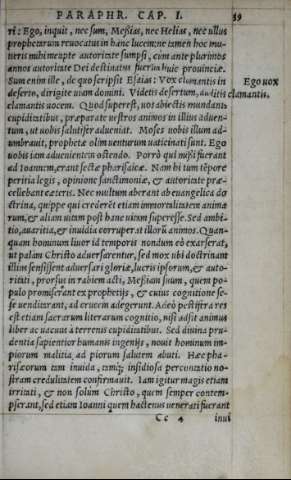 PARAPHR. CAP. I. 19
ri: Ego, inquit, nec sum, Meßias, nec Helias, nec ullus
prophetarum reuocatus in hanc lucem; ne tamen hoc mu-
neris mihi meapte autoritate sumpsi, cum ante plurimos
annos autoritate Dei destinatus fuerim huic prouinciæ.
Sum enim ille, de quo scripsit Esaias: Vox clamantis in
deserto, dirigite uiam domini. Videtis desertum, auditis
clamantis uocem. Quod superest, uos abiectis mundanis
cupiditatibus, præparate uestros animos in illius aduen-
tum, ut uobis salutifer adueniat. Moses uobis illum ad-
umbrauit, prophetæ olim uenturum uaticinati sunt. Ego
uobis iam aduenientem ostendo. Porrò qui mißi fuerant
ad Ioannem, erant sectæ pharisaicæ. Nam hi tum tēpore
peritia legis, opinione sanctimoniæ, & autoritate præ-
cellebant cæteris. Nec multum aberant ab euangelica do
ctrina, quippe qui crederēt etiam immortalitatem animæ
rum, & aliam uitam post hanc uitam superesse. Sed ambi-
tio, auaritia, & inuidia corruperat illorū animos. Quan-
quam hominum liuor id temporis nondum eò exarserat,
ut palàm Christo aduersarentur, sed mox ubi doctrinam
illius sensissent aduersari gloriæ, lucris ipsorum, & auto-
ritati, prorsus in rabiem acti, Meßiam suum, quem po-
pulo promiserant ex prophetijs, & cuius cognitione se-
se uenditarant, ad crucem adegerunt. Adeò pestifera res
est etiam sacrarum literarum cognitio, nisi adsit animus
liber ac uacuus à terrenis cupiditatibus. Sed diuina pru-
dentia sapientior humanis ingenijs, nouit hominum im-
piorum malitia ad piorum salutem abuti. Hæc pha-
risæorum tam inuida, tamq; insidiosa percontatio no-
stram credulitatem confirmauit. Iam igitur magis etiam
irritati, & non solùm Christo, quem semper contem-
pserant, sed etiam Ioanni quem hactenus uenerati fuerant
Cc 4 inui
Ego uox
clamantis.